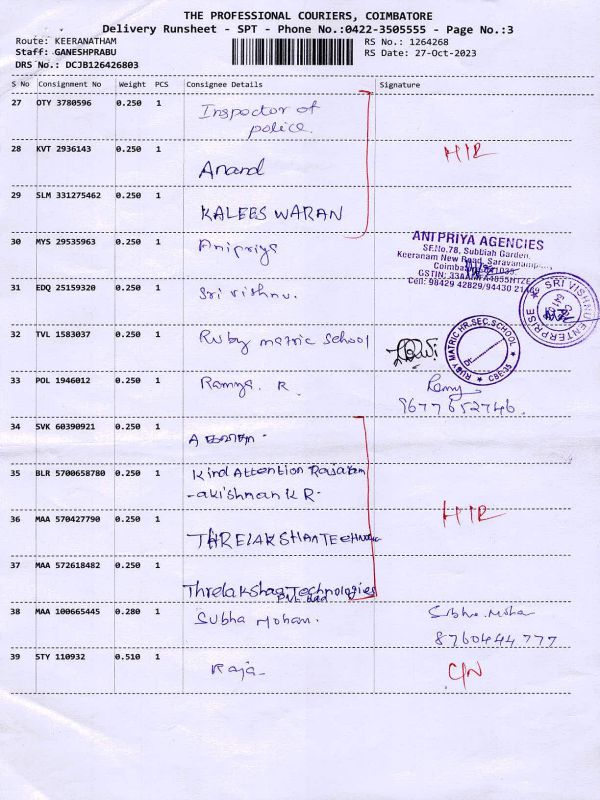 THE PROFESSIONAL COURIERS, COIMBATORE
Delivery Runsheet - SPT - Phone No.:0422-3505555 - Page No.:3
Route: KEERANATHAM
RS No.: 1264268
Staff: GANESHPRABU
RS Date: 27-Oct-2023
DRS No.: DCJB126426803
S No Consignment No Weight PCS Consignee Details Signature
27 OTY 3780596 0.250 1 Inspector of
police.
28 KVT 2936143 0.250 1 Anand
H/R
29 SLM 331275462 0.250 1 KALEESWARAN
30 MYS 29535963 0.250 1 Anipriya
ANI PRIYA AGENCIES
SF.No.78, Subbiah Garden,
Keeranam New Road, Saravanampatty
Coimbatore
Cell: 98429 42829/94430
31 EDQ 25159320 0.250 1 Sri vishnu.
SRI VISHNU ENTERPRISE
32 TVL 1583037 0.250 1 Ruby matric School
RUBY MATRIC HR.SEC.SCHOOL
CBE-35
33 POL 1946012 0.250 1 Ramya. R
Ramy
9677652746.
34 SVK 60390921 0.250 1
35 BLR 5700658780 0.250 1 Kind Attention Rajaram
-akishnan K R-
36 MAA 570427790 0.250 1
H/R
37 MAA 572618482 0.250 1 Technologies
38 MAA 100665445 0.280 1 Subha Mohan.
8760444777
39 STY 110932 0.510 1 Raja-
C/N